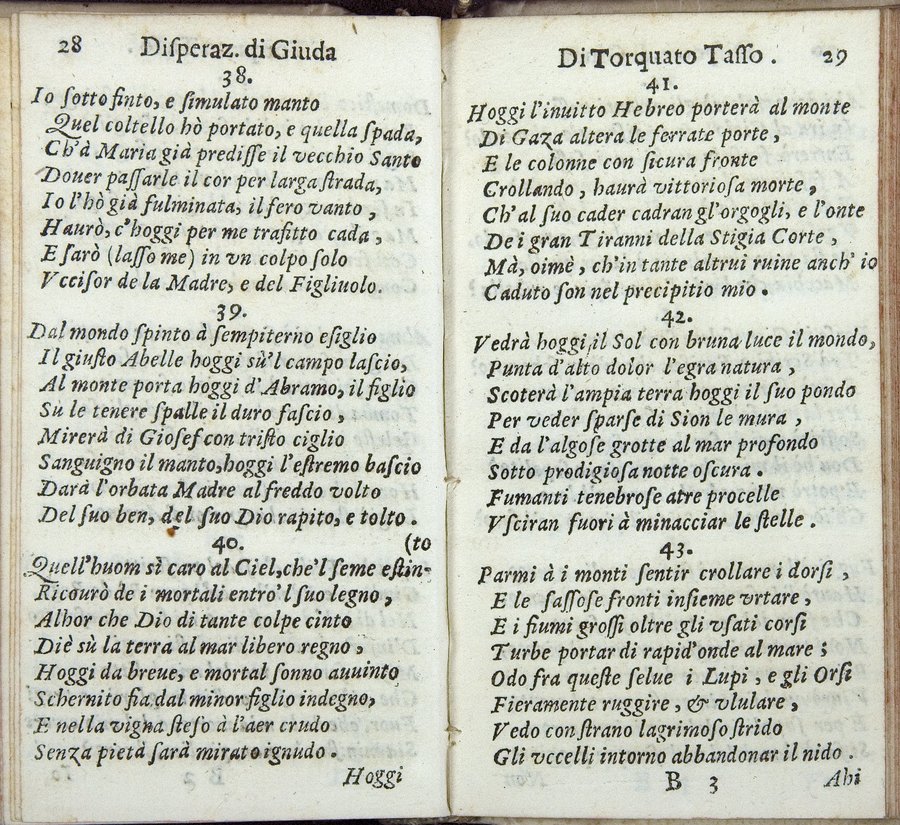 28 Diſperaz. di Giuda
38.
Io ſotto finto, e ſimulato manto
Quel coltello hò portato, e quella ſpada,
Ch'à Maria già prediſſe il vecchio Santo
Douer paſſarle il cor per larga ſtrada,
Io l'hò già fulminata, il fero vanto,
Haurò, c'hoggi per me trafitto cada,
E ſarò (laſſo me) in vn colpo ſolo
Vcciſor de la Madre, e del Figliuolo.
39.
Dal mondo ſpinto à ſempiterno eſiglio
Il giuſto Abelle hoggi sù'l campo laſcio,
Al monte porta hoggi d'Abramo, il figlio
Sù le tenere ſpalle il duro faſcio,
Mirerà di Gioſef con triſto ciglio
Sanguigno il manto, hoggi l'eſtremo baſcio
Darà l'orbata Madre al freddo volto
Del ſuo ben, del ſuo Dio rapito, e tolto.
40. (to
Quell'huom sì caro al Ciel, che'l ſeme eſtin-
Ricourò de i mortali entro'l ſuo legno,
Alhor che Dio di tante colpe cinto
Diè sù la terra al mar libero regno,
Hoggi da breue, e mortal ſonno auuinto
Schernito fia dal minor figlio indegno,
E nella vigna ſteſo a l'aer crudo
Senza pietà ſarà mirato ignudo.
Hoggi
Di Torquato Taſſo. 29
41.
Hoggi l'inuitto Hebreo porterà al monte
Di Gaza altera le ferrate porte,
E le colonne con ſicura fronte
Crollando, haurà vittorioſa morte,
Ch'al ſuo cader cadran gl'orgogli, e l'onte
De i gran Tiranni della Stigia Corte,
Mà, oimè, ch'in tante altrui ruine anch' io
Caduto ſon nel precipitio mio.
42.
Vedrà hoggi, il Sol con bruna luce il mondo,
Punta d'alto dolor l'egra natura,
Scoterà l'ampia terra hoggi il ſuo pondo
Per veder ſparſe di Sion le mura,
E da l'algoſe grotte al mar profondo
Sotto prodigioſa notte oſcura.
Fumanti tenebroſe atre procelle
Vſciran fuori à minacciar le ſtelle.
43.
Parmi à i monti ſentir crollare i dorſi,
E le ſaſſoſe fronti inſieme vrtare,
E i fiumi groſſi oltre gli vſati corſi
Turbe portar di rapid'onde al mare;
Odo fra queſte ſelue i Lupi, e gli Orſi
Fieramente ruggire, & vlulare,
Vedo con ſtrano lagrimoſo ſtrido
Gli vccelli intorno abbandonar il nido.
B 3 Ahi